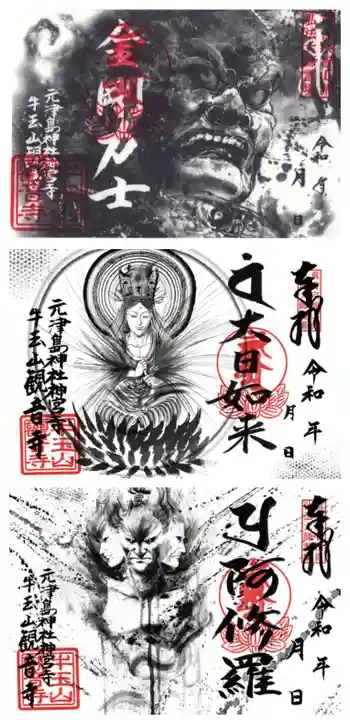 奉拝
令和 年
月 日
金剛力士
元津島神社神宮寺
牛玉山観音寺
奉拝
令和 年
月 日
大日如来
元津島神社神宮寺
牛玉山観音寺
牛玉山
観音寺
奉拝
令和 年
月 日
阿修羅
元津島神社神宮寺
牛玉山観音寺
牛玉山
観音寺